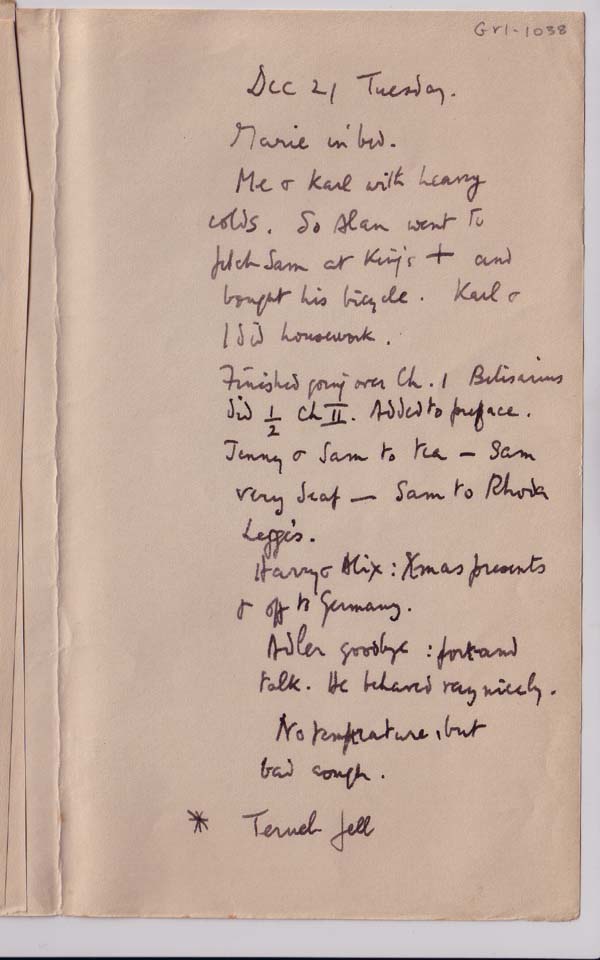 Gr1-1038
Dec 21 Tuesday.
Marie in bed.
Me & Karl with heavy
colds. So Alan went to
fetch Sam at King's + and
bought his bicycle. Karl &
I did housework.
Finished going over Ch. 1 Belisarius
did 1/2 Ch II. Added to preface.
Jenny & Sam to tea – Sam
very deaf – Sam to Rhoda
Legge's.
Harry & Alix : Xmas presents
& off to Germany.
Adler goodbye : port and
talk. He behaved very nicely.
No temperature, but
bad cough.
* Teruel fell